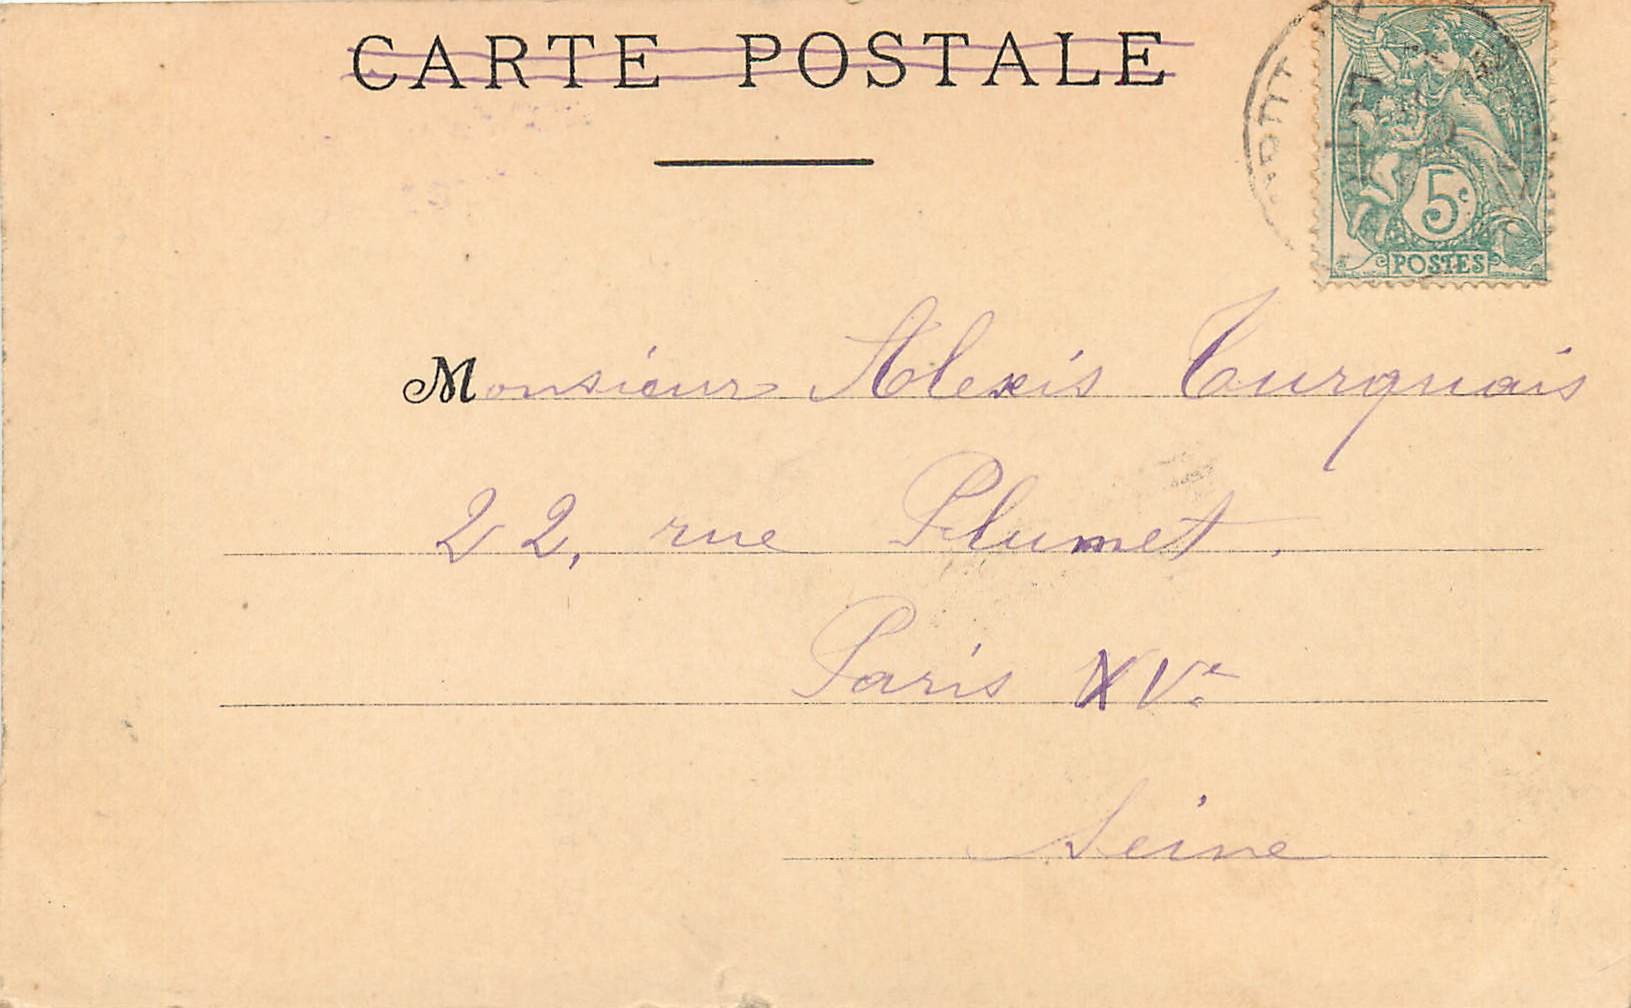 CARTE POSTALE
5c
POSTES
Monsieur Alexis Turquais
22, rue Plumet.
Paris XVe
Seine